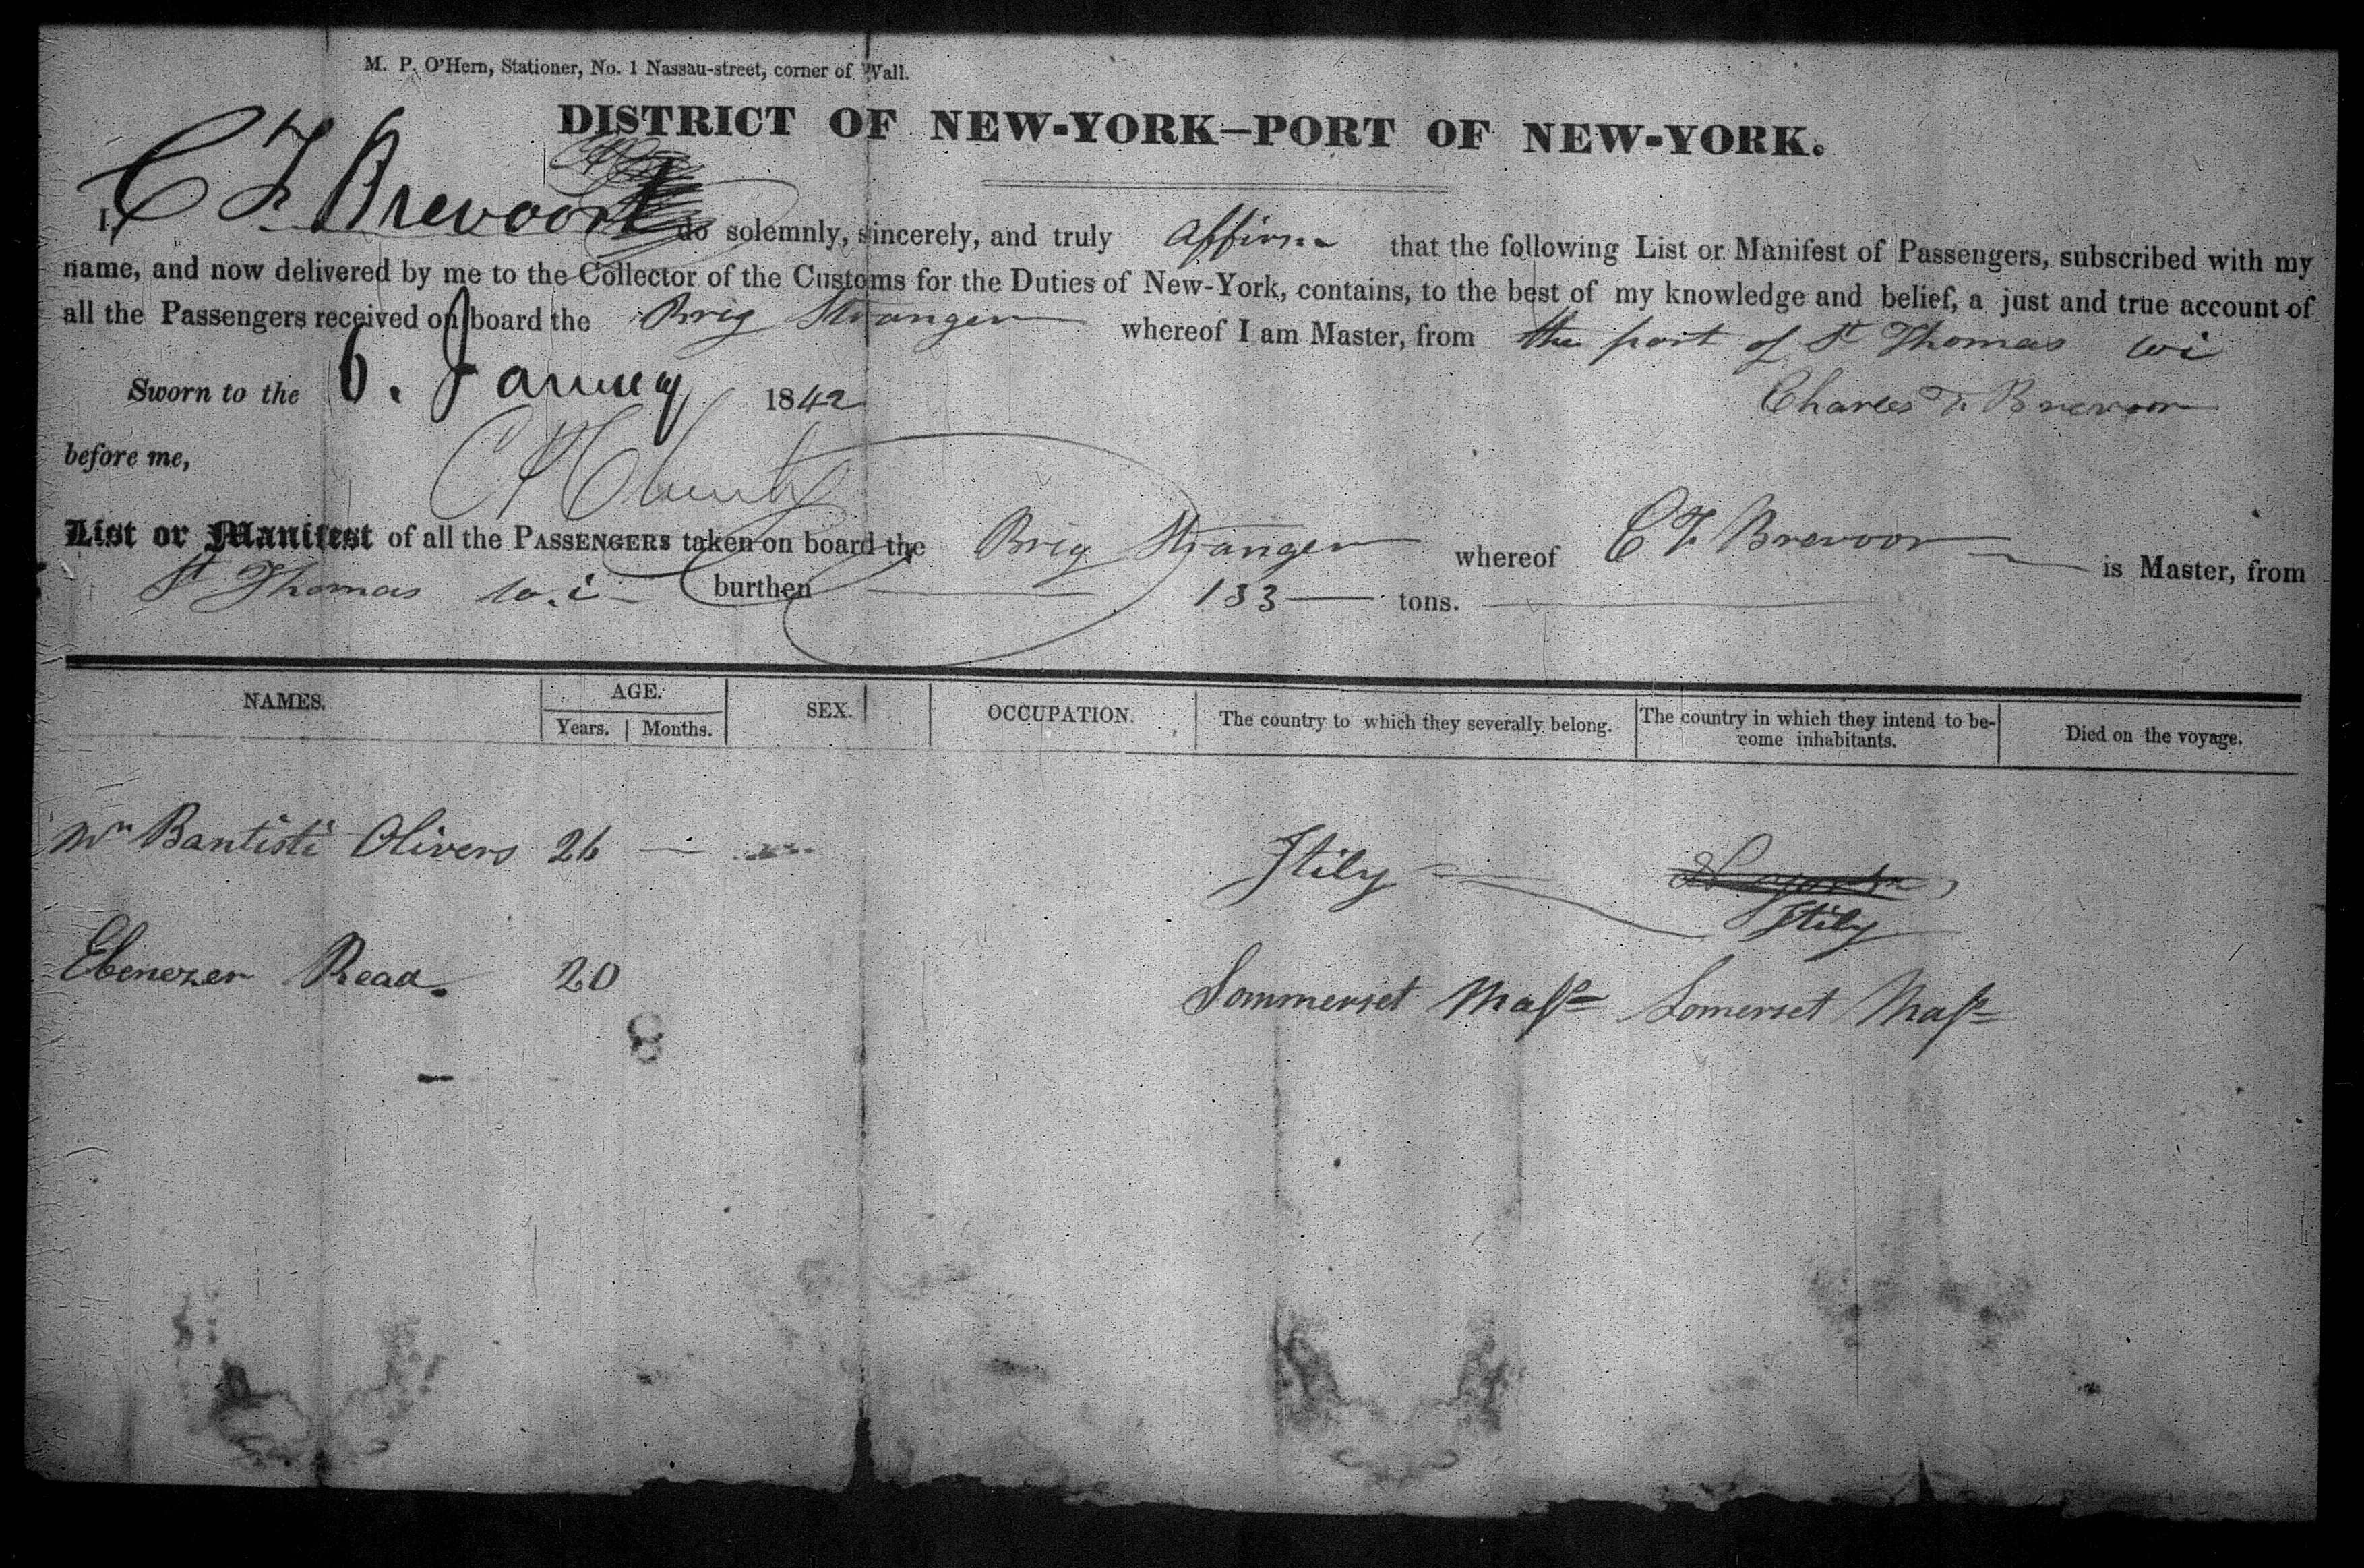 M. P. O'Hern, Stationer, No. 1 Nassau-street, corner of Wall.
DISTRICT OF NEW-YORK—PORT OF NEW-YORK.
I, C F Brevoort do solemnly, sincerely, and truly affirm that the following List or Manifest of Passengers, subscribed with my
name, and now delivered by me to the Collector of the Customs for the Duties of New-York, contains, to the best of my knowledge and belief, a just and true account of
all the Passengers received on board the Brig Stranger whereof I am Master, from the port of St Thomas wi
Sworn to the 6. January 1842 Charles F. Brevoor
before me,
List or Manifest of all the PASSENGERS taken on board the Brig Stranger whereof C F Brevoor is Master, from
St Thomas w.i burthen 133 tons.
NAMES. AGE. Years. Months. SEX. OCCUPATION. The country to which they severally belong. The country in which they intend to be-come inhabitants. Died on the voyage.
Mr Bantisti Olivers 26 — Itily
Itily
Ebenezer Read. 20 Sommerset Mass Somerset Mass